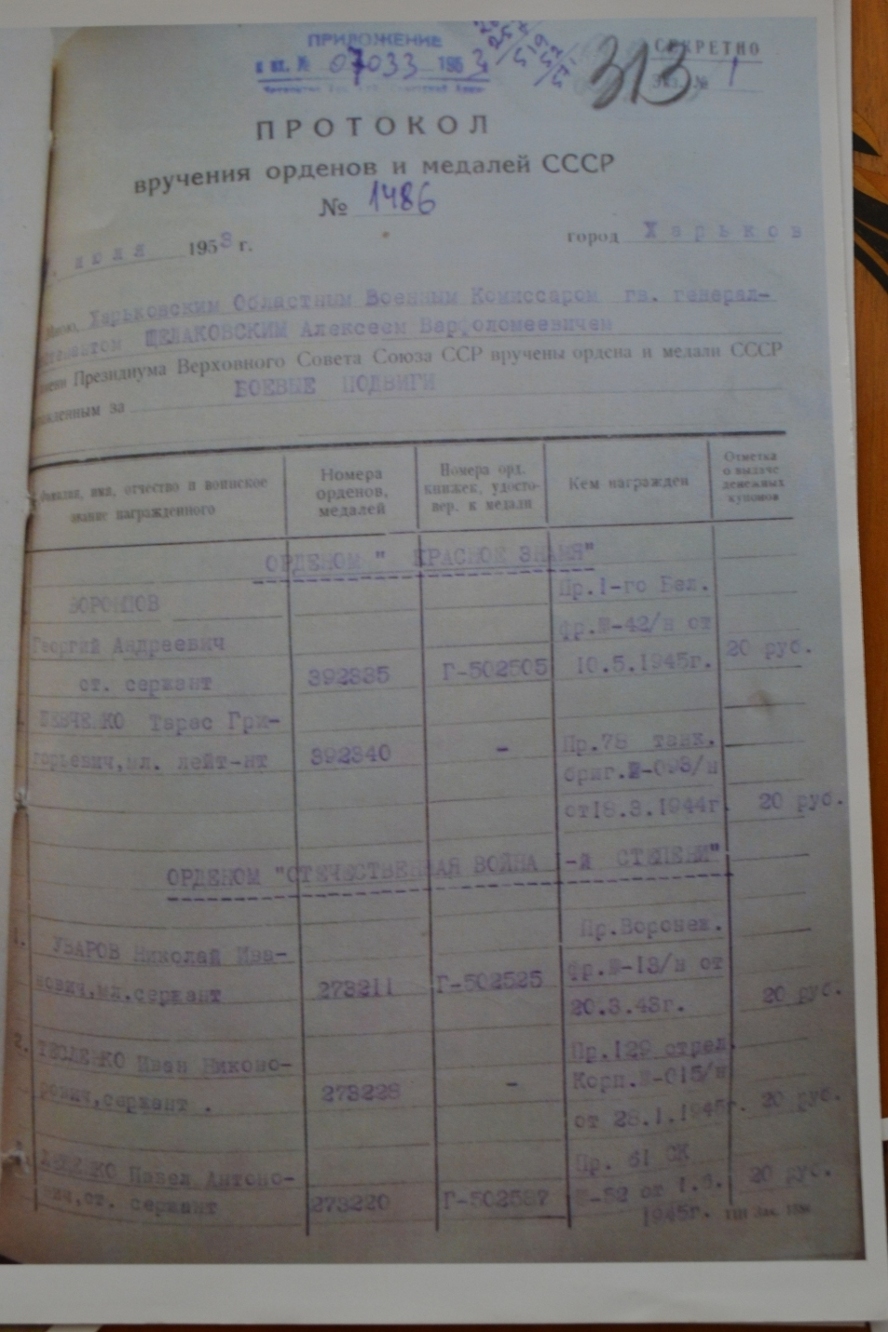 ПРИЛОЖЕНИЕ
к вх. № 07033 1953
СЕКРЕТНО
Экз. № 1
313
ПРОТОКОЛ
вручения орденов и медалей СССР
№ 1486
июля 1953 г.
город Харьков
Мною, Харьковским Областным Военным Комиссаром гв. генерал-
ЩЕЛАКОВСКИМ Алексеем Варфоломеевичем
Президиума Верховного Совета Союза ССР вручены ордена и медали СССР
за БОЕВЫЕ ПОДВИГИ
Фамилия, имя, отчество и воинское звание награжденного
Номера орденов, медалей
Номера орд. книжек, удосто-вер. к медали
Кем награжден
Отметка о выдаче денежных купонов
ОРДЕНОМ " КРАСНОЕ ЗНАМЯ"
ВОРОНЦОВ
Пр.1-го Бел.
Георгий Андреевич
фр.№-42/н от
ст. сержант 392335 Г-502505 10.5.1945г. 20 руб.
ШЕВЧЕНКО Тарас Гри-
горьевич,мл. лейт-нт 392340 - Пр.78 танк.
бриг.№-093/н
от18.3.1944г. 20 руб.
ОРДЕНОМ "ОТЕЧЕСТВЕННАЯ ВОЙНА I-й СТЕПЕНИ"
1. УВАРОВ Николай Ива-
Пр.Воронеж.
нович,мл.сержант 273211 Г-502525 фр.№-13/н от
20.3.43г. 20 руб.
2. Иван Никоно-
Пр.129 стрел.
рович,сержант. 273228 - Корп.№-015/н
от 28.1.1945г. 20 руб.
Павел Антоно-
Пр. 61 СК
вич,ст. сержант 273220 Г-502587 №-52 от 1.6. 20 руб.
1945г.